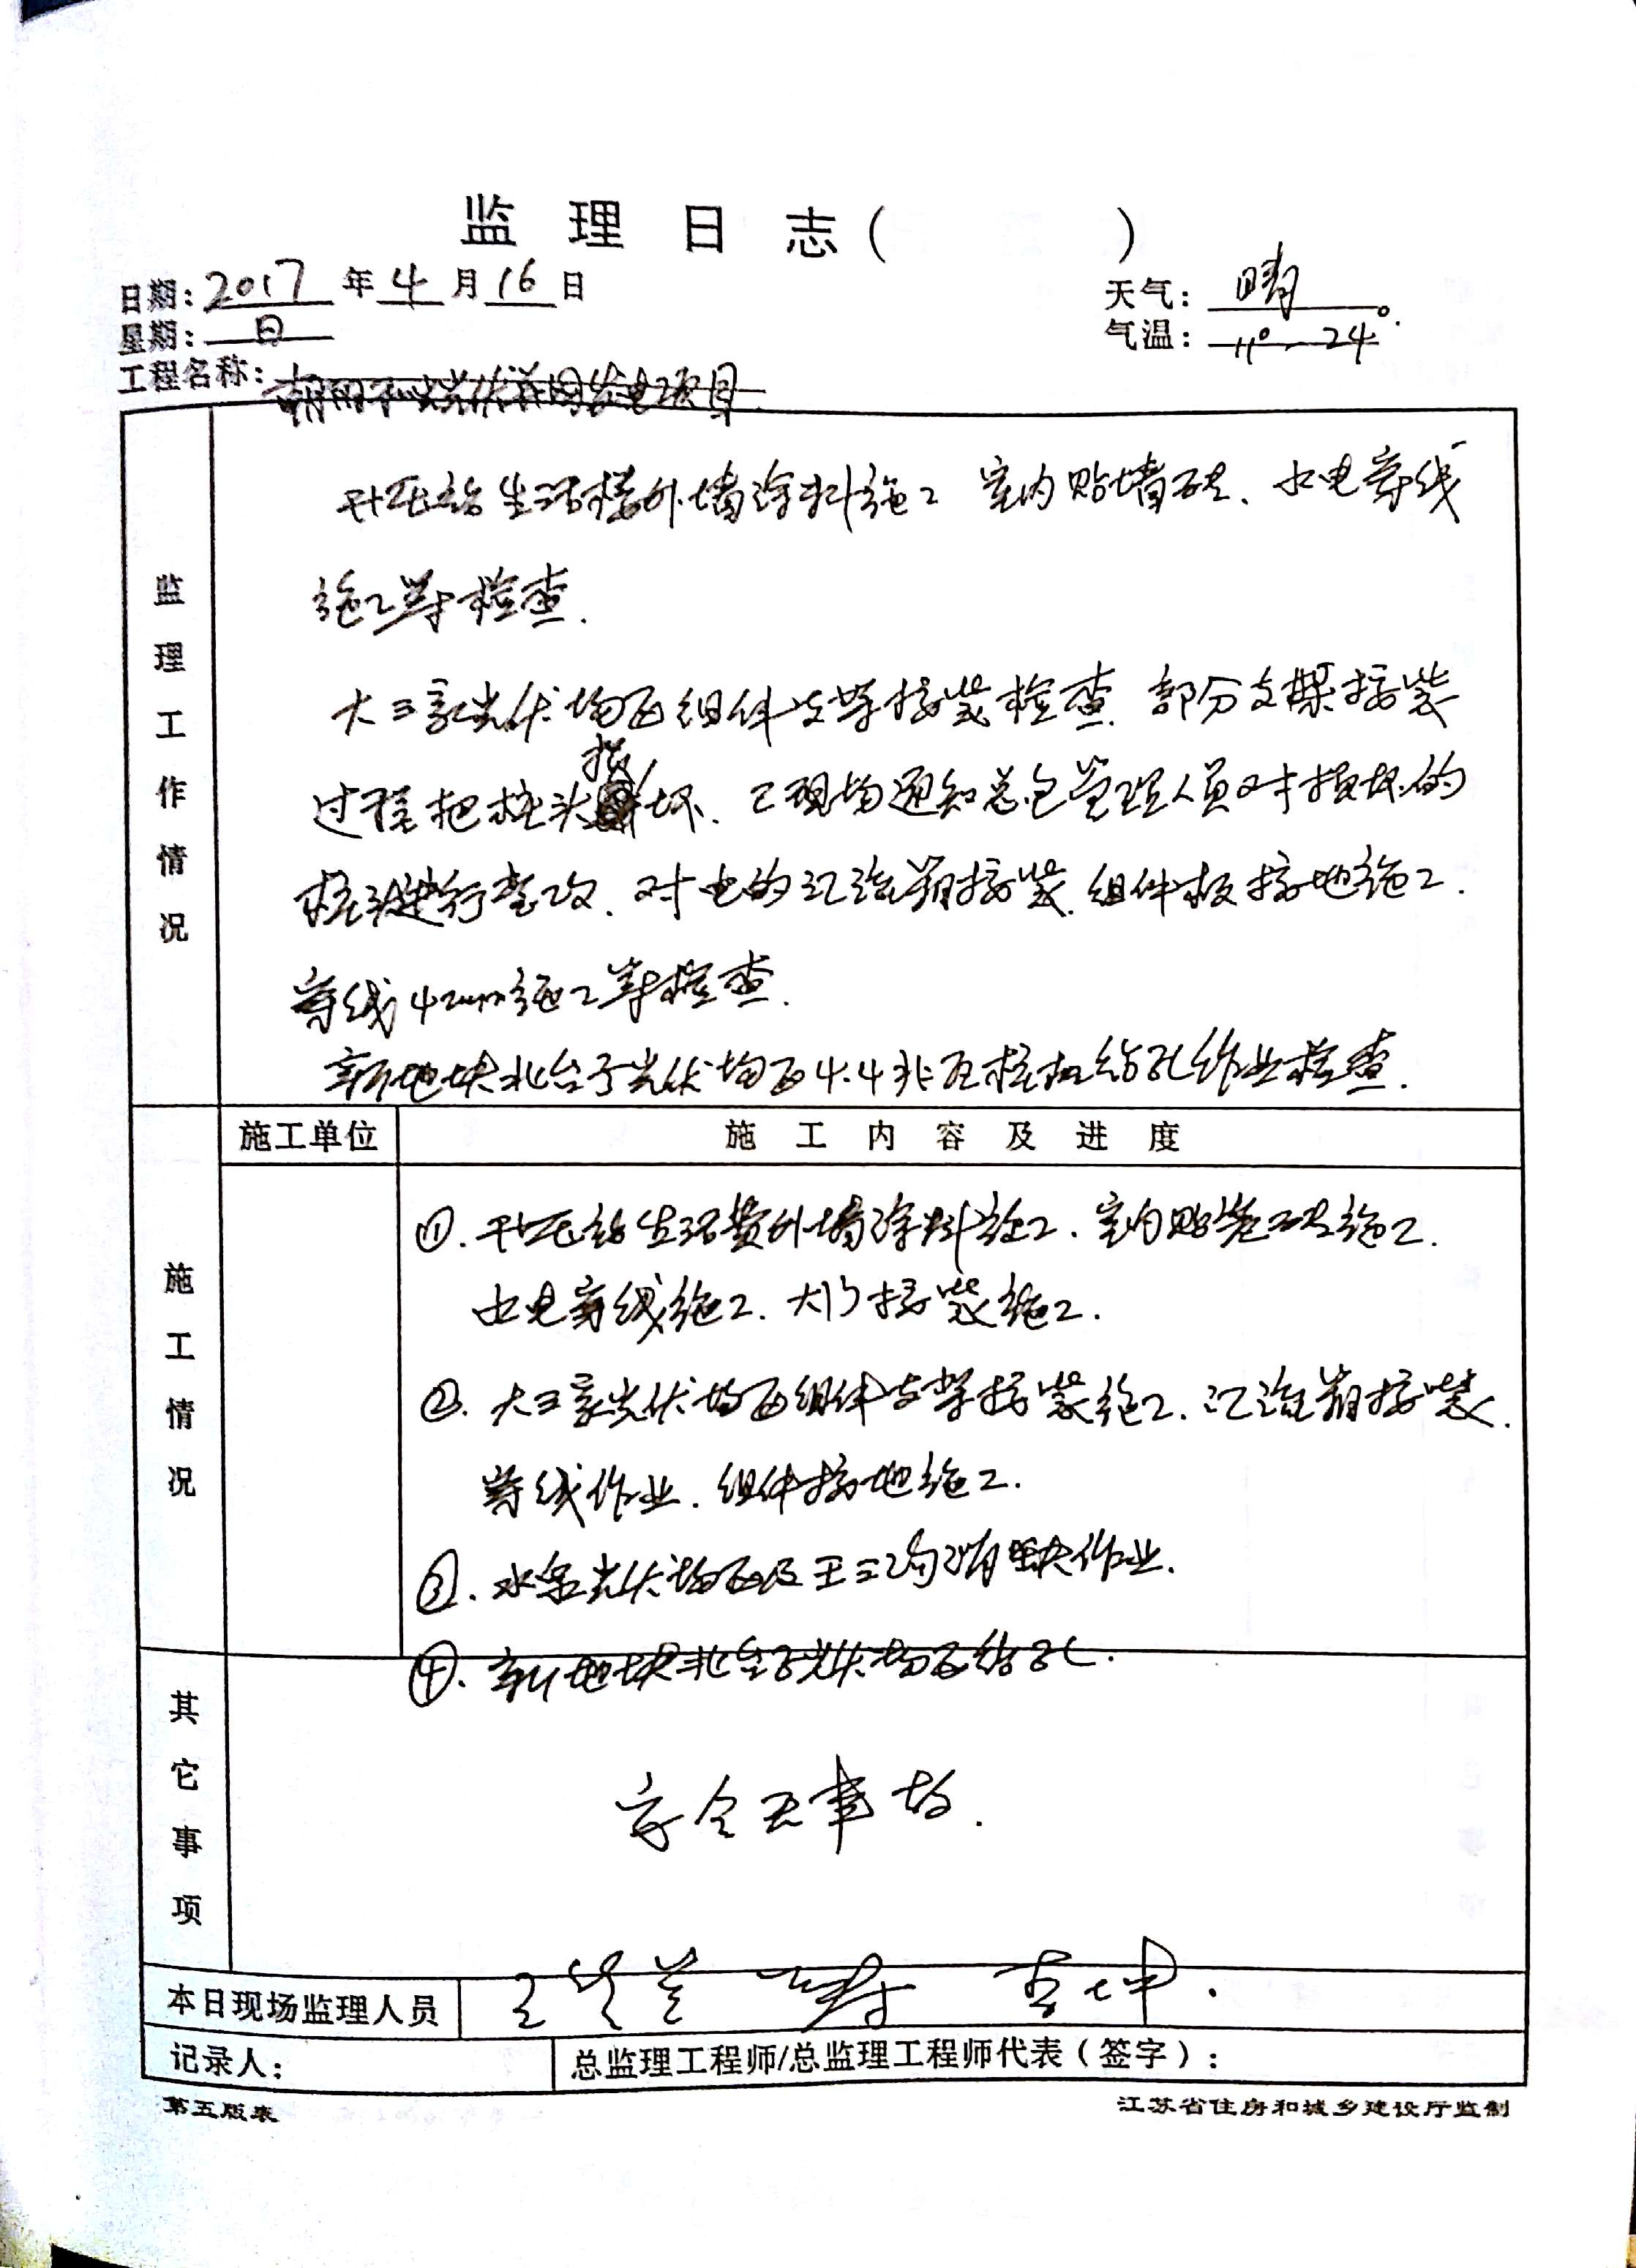 监理日志（ ）
日期：2017年4月16日
天气：晴
星期：日
气温：11°-24°.
工程名称：朝阳 光伏并网发电项目
监理工作情况
升压站生活楼外墙涂料施工 室内贴墙砖、水电穿线
施工等检查.
大三家光伏场区组件支架按装检查 部分支架按装
过程把桩头损坏、已现场通知总包管理人员对损坏的
桩头进行整改、对电的汇流箱按装、组件板接地施工.
穿线 施工等检查.
新地块北台子光伏场区4.4 桩机钻孔作业检查.
施工单位
施工内容及进度
施工情况
①.升压站生活 外墙涂料施工、室内贴瓷砖施工.
水电穿线施工、大门按装施工.
②.大三家光伏场区组件支架按装施工、汇流箱按装、
穿线作业、组件接地施工.
③.水泉光伏场区及王三沟 作业.
④.新地块北台子光伏场区钻孔.
其它事项
安全无事故.
本日现场监理人员
记录人：
总监理工程师/总监理工程师代表（签字）：
第五版表
江苏省住房和城乡建设厅监制